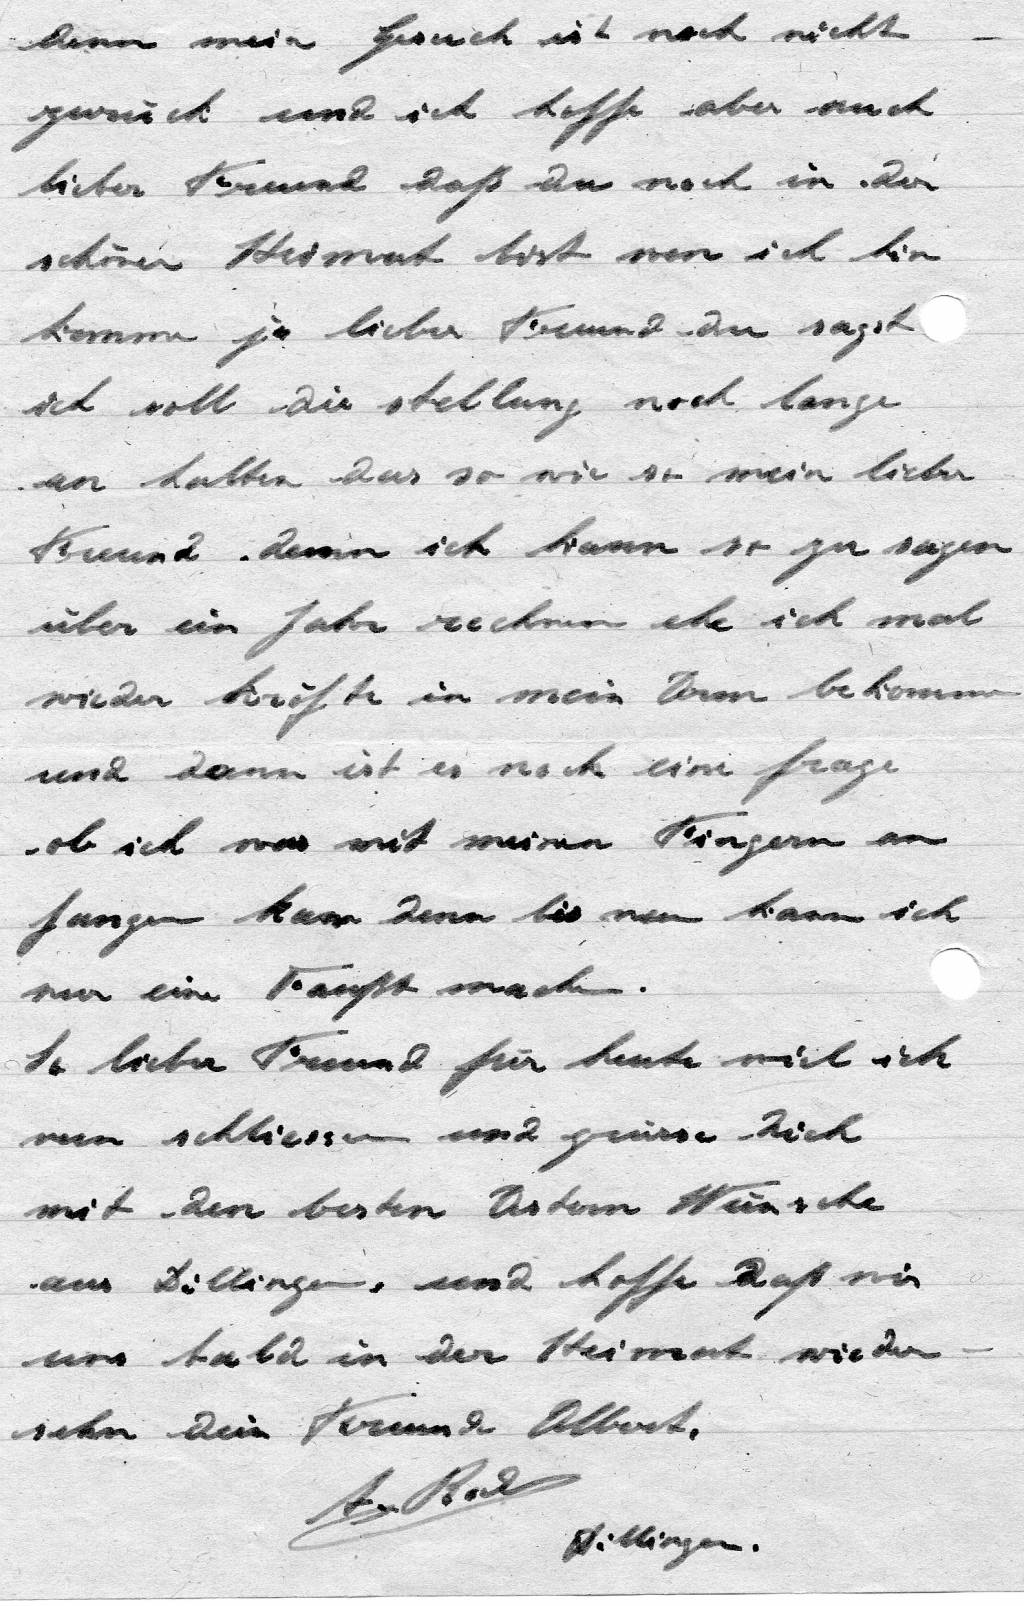 denn mein Gesuch ist noch nicht -
zurück und ich hoffe aber auch
lieber Freund daß du noch in der
schönen Heimat bist wen ich hin
komme ja lieber Freund du sagst
ich soll die stellung noch lange
an halten das so wie so mein lieber
Freund denn ich kann so zu sagen
über ein Jahr rechnen ehe ich mal
wieder kräfte in mein Arm bekomme
und dann ist es noch eine frage
ob ich was mit meinen Fingern an
fangen kann denn bis nun kann ich
nur eine Faußt machen.
So lieber Freund für heute will ich
nun schliessen und grüsse Dich
mit den besten Ostern Wünsche
aus Dillingen. und hoffe Daß wir
uns bald in der Heimat wieder -
sehn dein Freund Albert.
Dillingen.